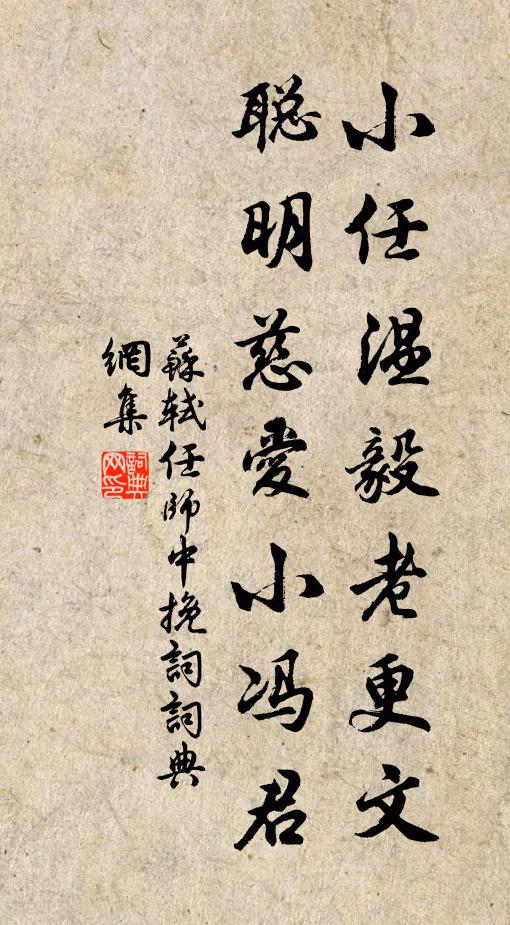 小任温毅老更文
聪明慈愛小冯君
蘇軾任師中挽詞詞典
網集
詞典
网印